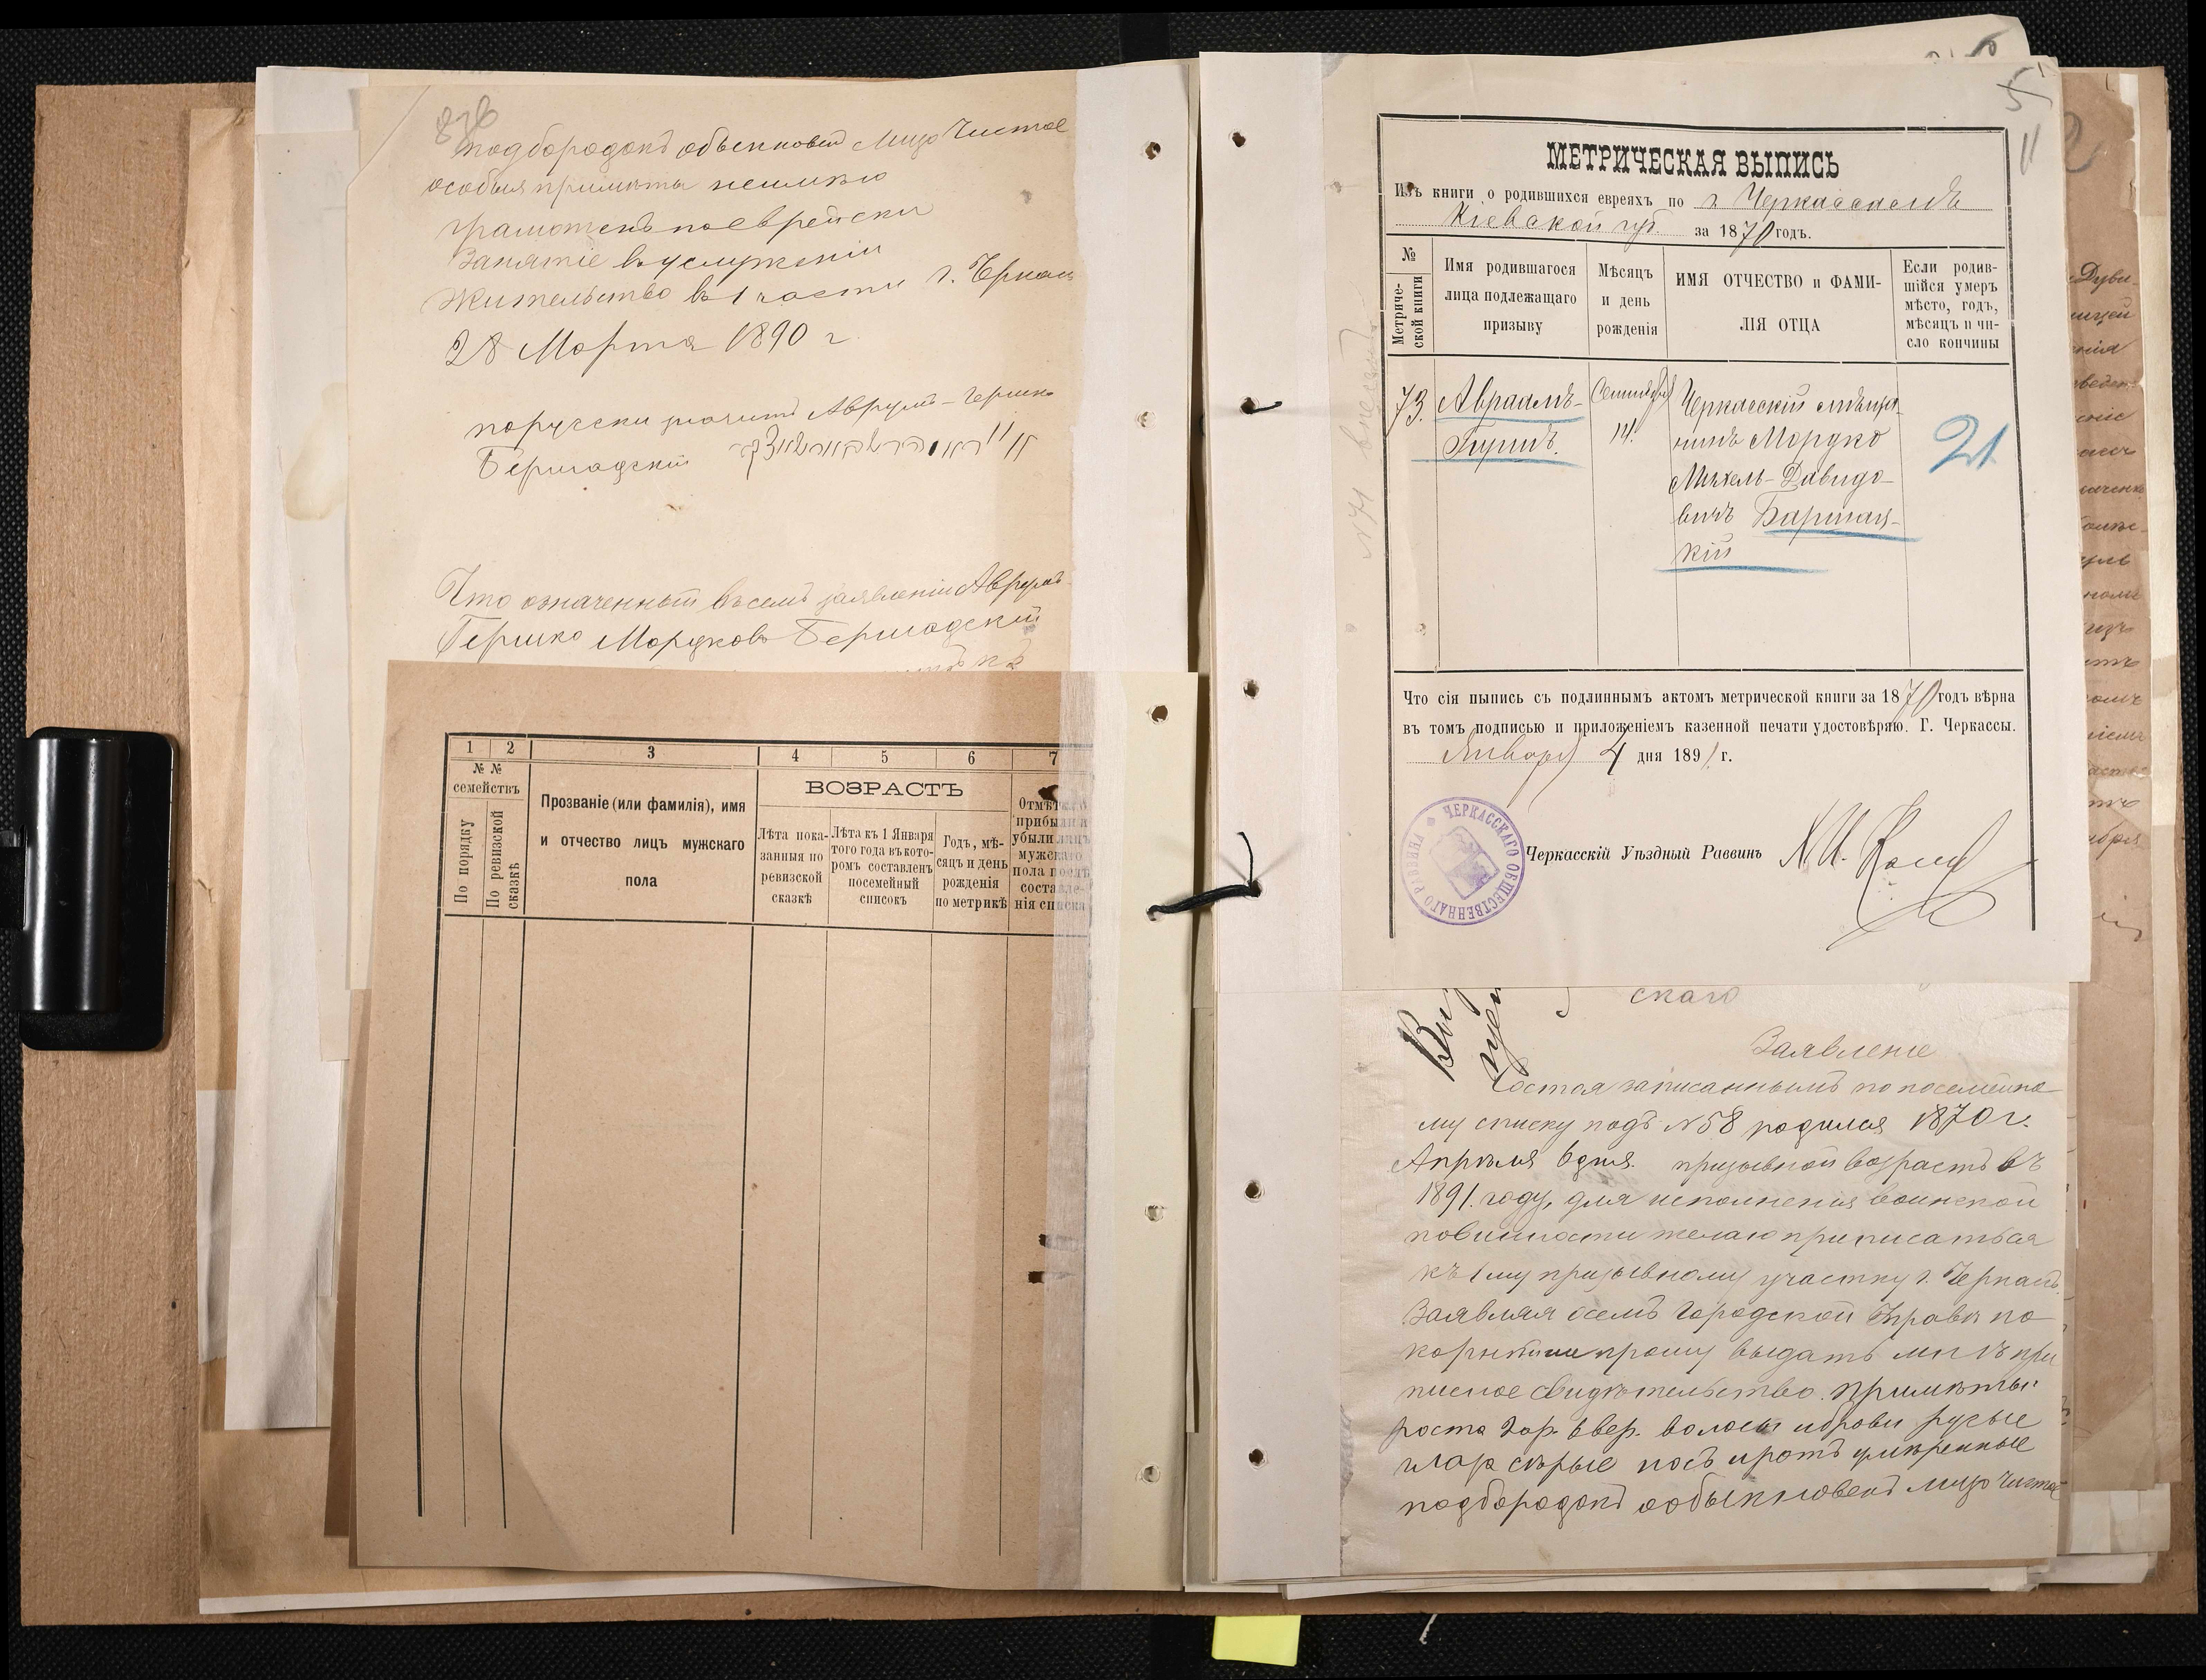 подбородокъ обыкновен Лицо Чистое
особыя приметы неимею
грамотенъ поеврейски
Занятіе въ услуженіи
Жительство въ 1 части г. Черкас
28 Марта 1890 г
порусски значитъ Аврумъ-Гершко
Бершадскій
Что означенный въсемъ заявленіи Аврумъ-
Гершко Мордковъ Бершадскій
1 2 3 4 5 6 7
№ №
семействъ
По порядку
По ревизской
сказкѣ
Прозваніе (или фамилія), имя
и отчество лицъ мужскаго
пола
ВОЗРАСТЪ
Лѣта пока-
занныя по
ревизской
сказкѣ
Лѣта къ 1 Января
того года въ кото-
ромъ составленъ
посемейный
списокъ
Годъ, мѣ-
сяцъ и день
рожденія
по метрикѣ
прибыли и
убыли лицъ
мужскаго
пола послѣ
составле-
нія списка
51
11
МЕТРИЧЕСКАЯ ВЫПИСЬ
Изъ книги о родившихся евреяхъ по г. Черкассамъ
Кіевской губ. за 1870 годъ.
№
Метриче-
ской книги
Имя родившагося
лица подлежащаго
призыву
Мѣсяцъ
и день
рожденія
ИМЯ ОТЧЕСТВО и ФАМИ-
ЛІЯ ОТЦА
Если родив-
шійся умеръ
мѣсто, годъ,
мѣсяцъ и чи-
сло кончины
73.
Авраамъ-
Гершъ.
Сентября
14.
Черкасскій мѣща-
нинъ Мордко
Михель-Давидо-
вичъ Баршац-
кій
21
Что сія выпись съ подлиннымъ актомъ метрической книги за 1870 годъ вѣрна
въ томъ подписью и приложеніемъ казенной печати удостовѣряю. Г. Черкассы.
Января 4 дня 1891 г.
ЧЕРКАССКАГО ОБЩЕСТВЕННАГО РАВВИНА
Черкасскій Уѣздный Раввинъ
скаго
Заявленіе
Состоя записаннымъ по посемейно
му списку подъ №58 родился 1870 г.
Апрѣля 6 дня. призывной возрастъ въ
1891. году, для исполненія воинской
повинности желаю приписаться
къ 1му призывному участку г. Черкасъ.
Заявляя осемъ Городской Управѣ по
корнѣйше прошу выдать мнѣ при
писное свидѣтельство. примѣты:
роста 2 ар. 6 вер. волосы и брови русые
глаза сѣрые носъ и ротъ умѣренные
подбородокъ обыкновенъ лицо чистое